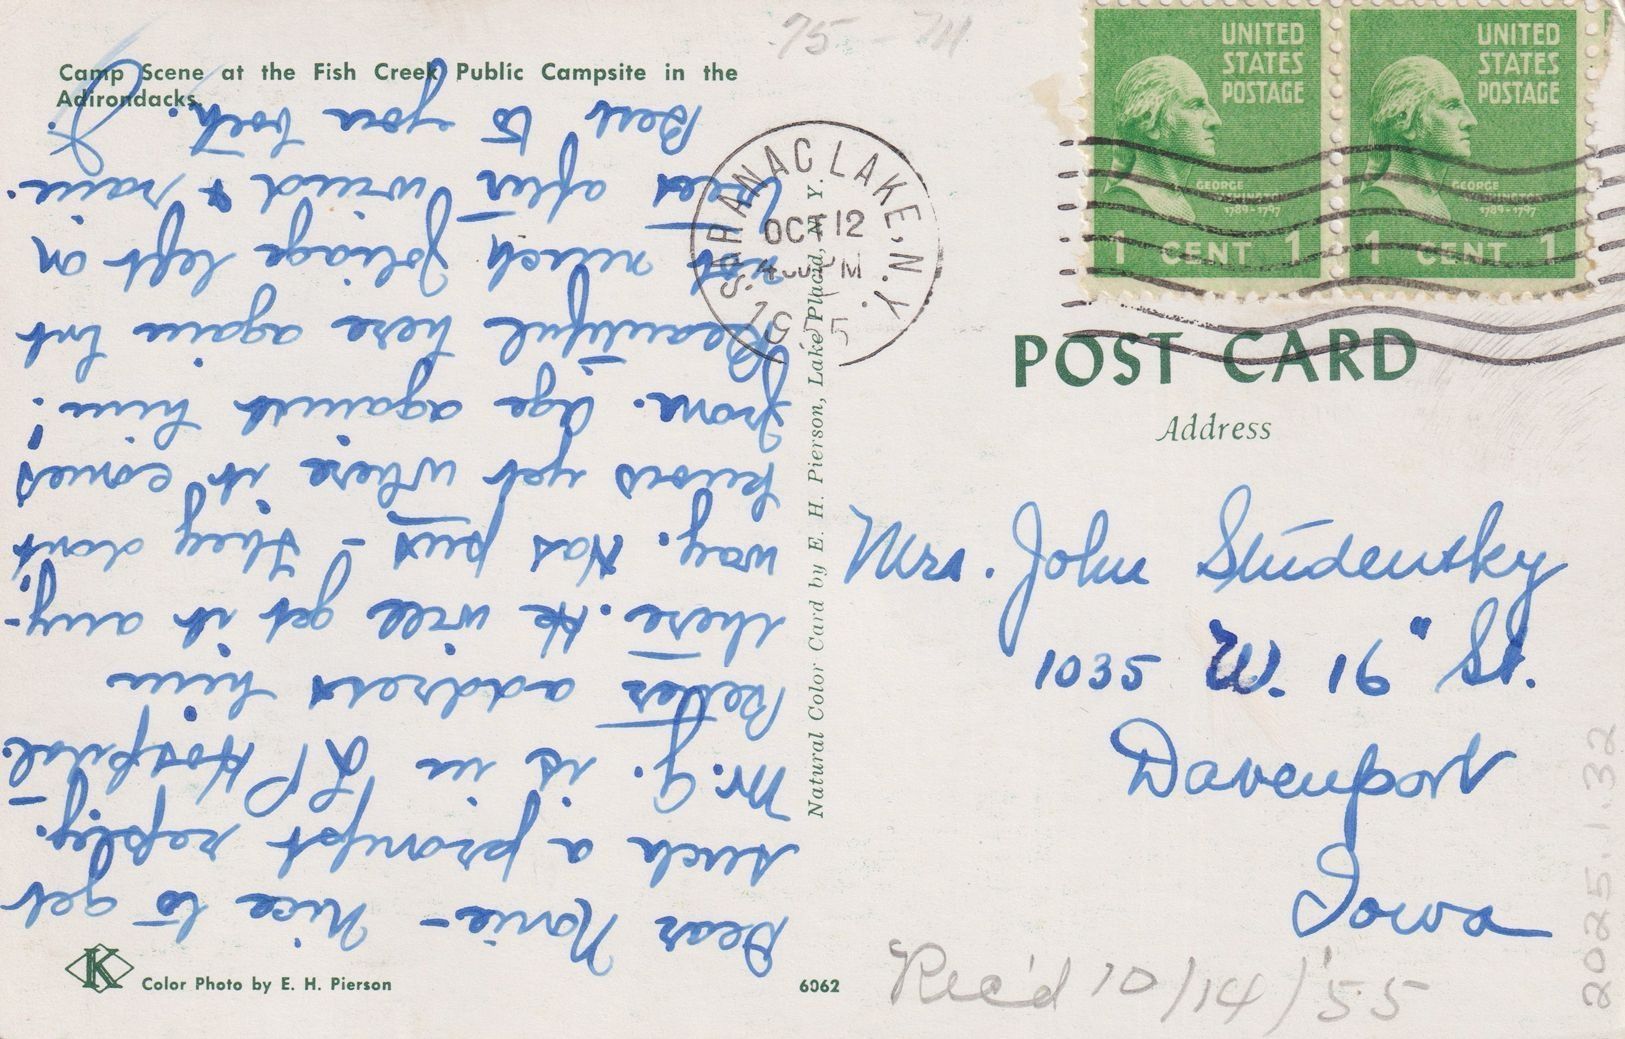 75-711
Camp Scene at the Fish Creek Public Campsite in the
Adirondacks.
Dear Norie - Nice to get
such a prompt reply.
Mr. G. is in LP Hospital.
Better address him
there. He will get it any-
way. Has pus - they dont
know yet where it comes
from. Age against him!
Beautiful here again but
not much foliage left on
trees after wind & rain.
Best to you both. J.
K
Color Photo by E. H. Pierson
6062
Natural Color Card by E. H. Pierson, Lake Placid, N. Y.
SARANAC LAKE, N.Y.
OCT 12
PM
UNITED
STATES
POSTAGE
GEORGE
WASHINGTON
1789-1797
1 CENT 1
UNITED
STATES
POSTAGE
GEORGE
WASHINGTON
1789-1797
1 CENT 1
POST CARD
Address
Mrs. John Studentsky
1035 W. 16" St.
Davenport
Iowa
Rec'd 10/14/'55
2025.1.32